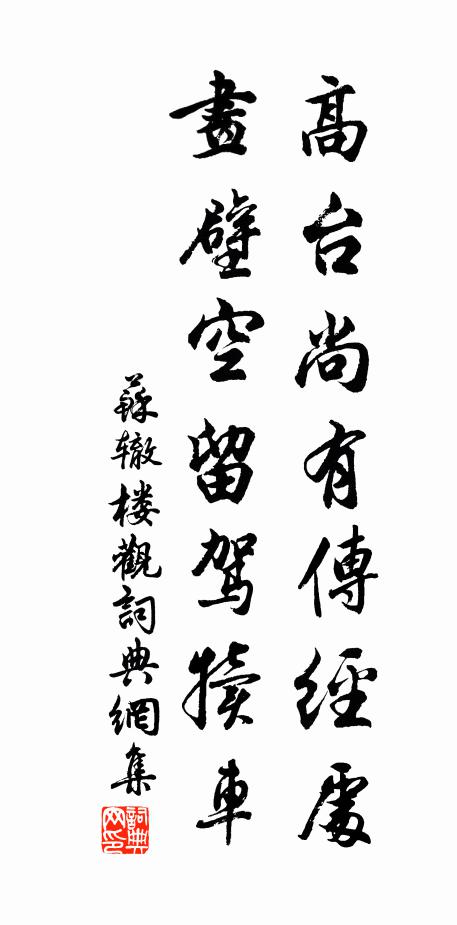 高台尚有傳經處
畫壁空留駕犢車
蘇辙楼觀詞典網集
詞典网印